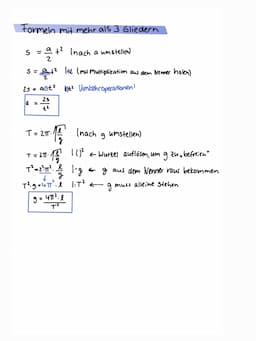 Formeln mit mehr als 3 Gliedern
s = a/2 t² (nach a umstellen)
s = a/2 t² |·2 (mit Multiplikation aus dem Nenner holen)
2s = a·t² |:t² Umkehroperationen!
a = 2s/t²
T = 2π·√(l/g) (nach g umstellen)
T = 2π·√(l/g) |()² ← Wurzel auflösen, um g zu „befreien"
T² = 2²π²·l/g |·g ← g aus dem Nenner raus bekommen
T²·g = 4π²·l |:T² ← g muss alleine stehen
g = 4π²·l/T²